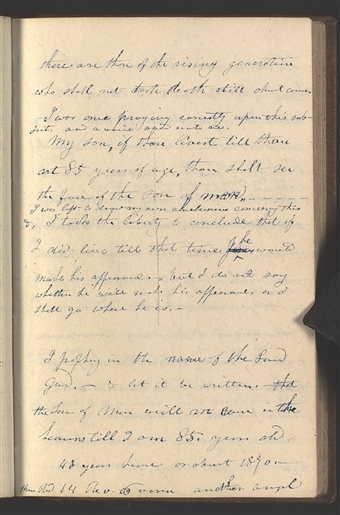 there are those of the rising generation
who shall not taste death till christ come.
I was once praying earnestly upon this sub-
ject. and a voice said unto me.
My Son, if thou livest till thou
art 85 years of age, thou shalt see
the face of the Son of man. —
I was left to draw my own conclusions concerning this
&, I took the liberty to conclude that if
I did live till that time he would
make his appearance. — but I do not say
whether he will make his appearance or I
shall go where he is. —
I prophesy in the name of the Lord
God. — & let it be written. that
the Son of Man will not come in the
heavens till I am 85. years old
48 years hence or about 1890 —
then Read 14 Rev. 6 verse another angel